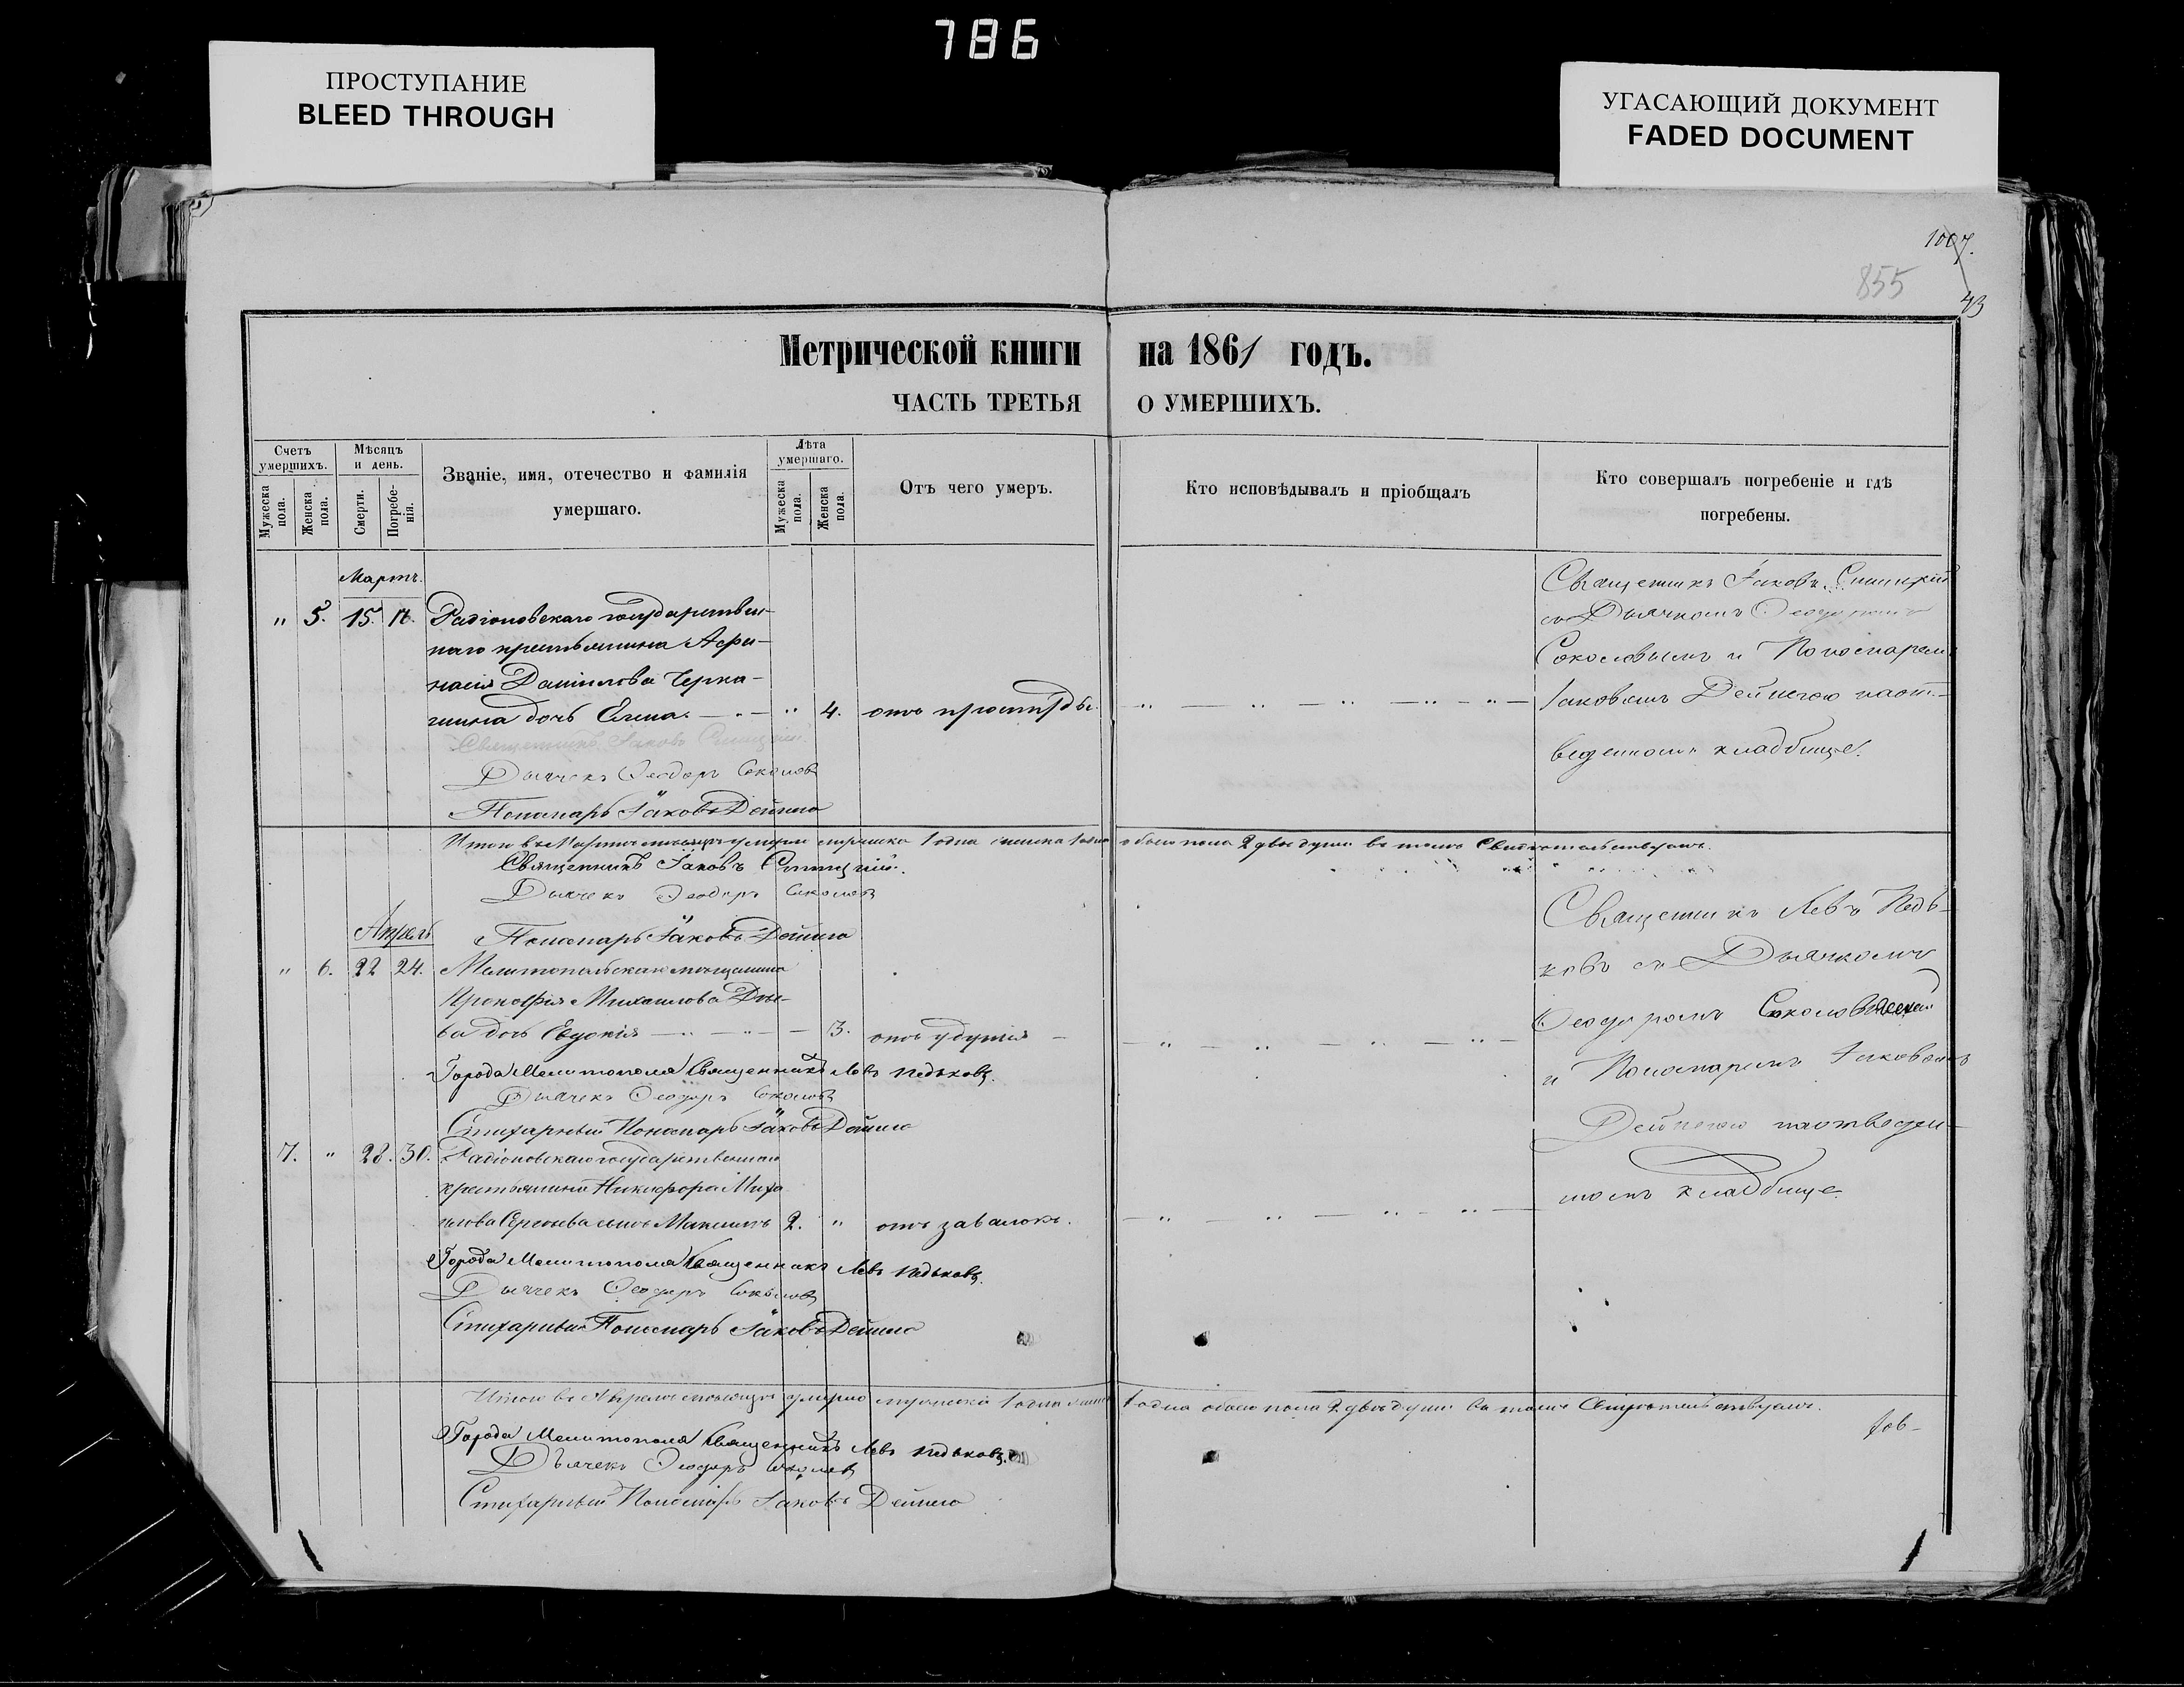 786
ПРОСТУПАНИЕ
BLEED THROUGH
УГАСАЮЩИЙ ДОКУМЕНТ
FADED DOCUMENT
1007.
855
43
Метрической книги на 1861 годъ.
ЧАСТЬ ТРЕТЬЯ О УМЕРШИХЪ.
Счетъ умершихъ.
Мужеска пола.
Женска пола.
Мѣсяцъ и день.
Смерти.
Погребенія.
Званіе, имя, отечество и фамилія умершаго.
Лѣта умершаго.
Мужеска пола.
Женска пола.
Отъ чего умеръ.
Кто исповѣдывалъ и пріобщалъ
Кто совершалъ погребеніе и гдѣ погребены.
Мартъ.
" 5. 15. 17. Радіоновскаго государствен-
наго крестьянина Афа-
насія Данилова Черка-
шина дочь Елена " 4. отъ простуды.
Священникъ Іаковъ
Дьячекъ Ѳеодоръ Соколовъ
Пономарь Іаковъ Дейнега
Священникъ Іаковъ
съ Дьячкомъ Ѳеодоромъ
Соколовымъ и Пономаремъ
Іаковомъ Дейнегою на от-
веденномъ кладбище.
Итого въ Мартѣ мѣсяцѣ умерло мужеска 1 одна женска 1 одна обоего пола 2 двѣ души въ томъ Свидетельствуемъ.
Священникъ Іаковъ
Дьячекъ Ѳеодоръ Соколовъ
Пономарь Іаковъ Дейнега
Апрель
" 6. 22 24. Мелитопольскаго мещанина
Прокофія Михаилова
ва дочь Евдокія 3. отъ удушія
Города Мелитополя Священникъ Левъ Педьковъ.
Дьячекъ Ѳеодоръ Соколовъ
Стихарный Пономарь Іаковъ Дейнега
Священникъ Левъ Педь-
ковъ съ Дьячкомъ
Ѳеодоромъ
и Пономаремъ Іаковомъ
Дейнегою на отведен-
номъ кладбище.
7. " 28. 30. Радіоновскаго государственнаго
крестьянина Никифора Миха
илова Сергѣева сынъ Максимъ 2. " отъ завалокъ.
Города Мелитополя Священникъ Левъ Педьковъ.
Дьячекъ Ѳеодоръ Соколовъ
Стихарный Пономарь Іаковъ Дейнега
Итого въ Апреле месяце умерло мужеска 1 одна женска 1 одна обоего пола 2 двѣ души въ томъ Свидѣтельствуемъ.
Города Мелитополя Священникъ Левъ Педьковъ.
Дьячекъ Ѳеодоръ Соколовъ
Стихарный Пономарь Іаковъ Дейнега